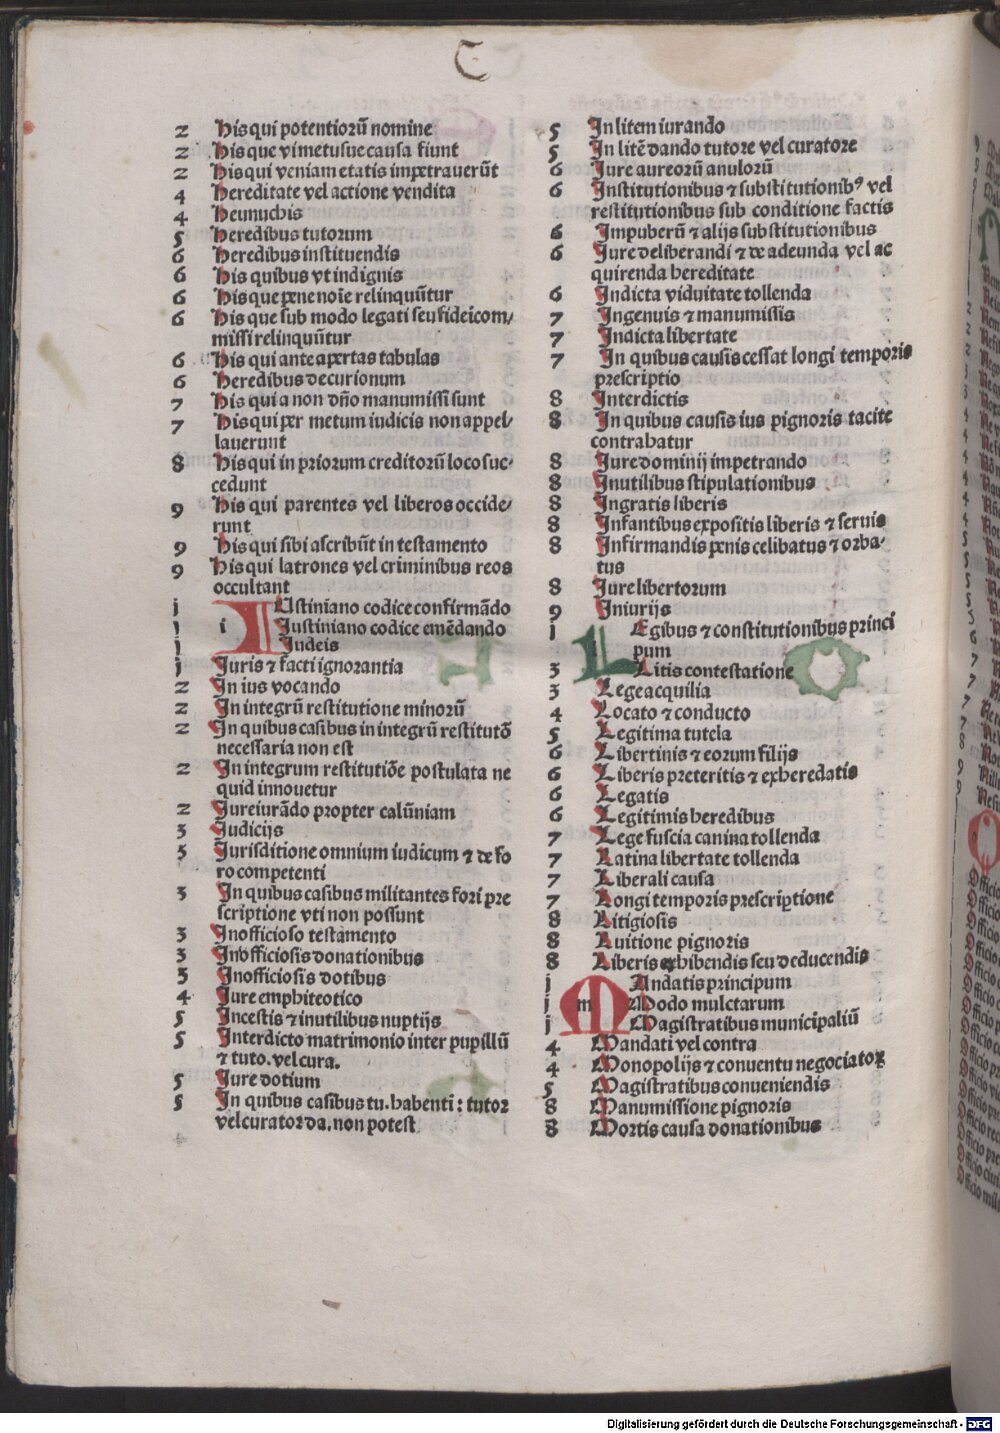 C
2 His qui potentiorū nomine
2 His que vi metusue causa fiunt
2 His qui veniam etatis impetrauerūt
4 Hereditate vel actione vendita
4 Heunuchis
5 Heredibus tutorum
6 Heredibus instituendis
6 His quibus vt indignis
6 His que pene noīe relinquūtur
6 His que sub modo legati seu fideicom/
missi relinquūtur
6 His qui ante apertas tabulas
6 Heredibus decurionum
7 His qui a non dño manumissi sunt
7 His qui per metum iudicis non appel/
lauerunt
8 His qui in priorum creditorū loco suc/
cedunt
9 His qui parentes vel liberos occide/
runt
9 His qui sibi ascribūt in testamento
9 His qui latrones vel criminibus reos
occultant
j i IUstiniano codice confirmādo
j Iustiniano codice emēdando
j Iudeis
j Iuris ⁊ facti ignorantia
2 In ius vocando
2 In integrū restitutione minorū
2 In quibus casibus in integrū restitutō
necessaria non est
2 In integrum restitutiōe postulata ne
quid innouetur
2 Iureiurādo propter calūniam
3 Iudicijs
3 Iurisditione omnium iudicum ⁊ de fo
ro competenti
3 In quibus casibus militantes fori pre
scriptione vti non possunt
3 Inofficioso testamento
3 Inofficiosis donationibus
3 Inofficiosis dotibus
4 Iure emphiteotico
5 Incestis ⁊ inutilibus nuptijs
5 Interdicto matrimonio inter pupillū
⁊ tuto. vel cura.
5 Iure dotium
5 In quibus casibus tu. habenti : tutor
vel curator da. non potest
5 In litem iurando
5 In litē dando tutore vel curatore
6 Iure aureorū anulorū
6 Institutionibus ⁊ substitutionibꝰ vel
restitutionibus sub conditione factis
6 Impuberū ⁊ alijs substitutionibus
6 Iure deliberandi ⁊ de adeunda vel ac
quirenda hereditate
6 Indicta viduitate tollenda
7 Ingenuis ⁊ manumissis
7 Indicta libertate
7 In quibus causis cessat longi temporis
prescriptio
8 Interdictis
8 In quibus causis ius pignoris tacite
contrahatur
8 Iure dominij impetrando
8 Inutilibus stipulationibus
8 Ingratis liberis
8 Infantibus expositis liberis ⁊ seruis
8 Infirmandis penis celibatus ⁊ orba/
tus
8 Iure libertorum
9 Iniurijs
j LEgibus ⁊ constitutionibus princi
pum
3 Litis contestatione
3 Lege acquilia
4 Locato ⁊ conducto
5 Legitima tutela
6 Libertinis ⁊ eorum filijs
6 Liberis preteritis ⁊ exheredatis
6 Legatis
6 Legitimis heredibus
7 Lege fuscia canina tollenda
7 Latina libertate tollenda
7 Liberali causa
7 Longi temporis prescriptione
8 Litigiosis
8 Luitione pignoris
8 Liberis exhibendis seu deducendis
j MAndatis principum
j m Modo mulctarum
j Magistratibus municipaliū
4 Mandati vel contra
4 Monopolijs ⁊ conuentu negociatoꝝ
5 Magistratibus conueniendis
8 Manumissione pignoris
8 Mortis causa donationibus
Digitalisierung gefördert durch die Deutsche Forschungsgemeinschaft - DFG